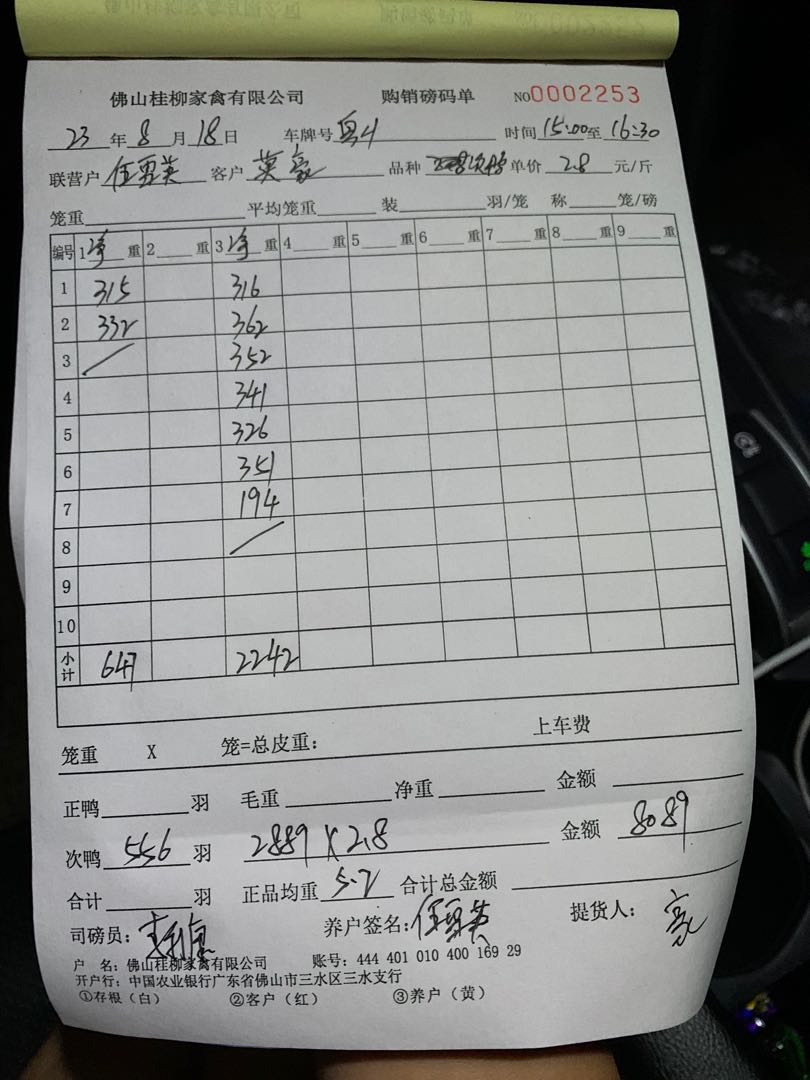 佛山桂柳家禽有限公司 购销磅码单 NO0002253
23年8月18日 车牌号 粤 时间 15:00至16:30
联营户 伍 英 客户 英豪 品种 次鸭 单价 2.8 元/斤
笼重 平均笼重 装 羽/笼 称 笼/磅
编号 1净重 2重 3净重 4重 5重 6重 7重 8重 9重
1 315 316
2 332 362
3 / 352
4 341
5 326
6 351
7 194
8 /
9
10
小计 647 2242
笼重 X 笼=总皮重: 上车费
正鸭 羽 毛重 净重 金额
次鸭 556 羽 2889 X 2.8 金额 8089
合计 羽 正品均重 5.2 合计总金额
司磅员: 养户签名: 伍 英 提货人: 豪
户 名: 佛山桂柳家禽有限公司 账号: 444 401 010 400 169 29
开户行: 中国农业银行广东省佛山市三水区三水支行
①存根(白) ②客户(红) ③养户(黄)